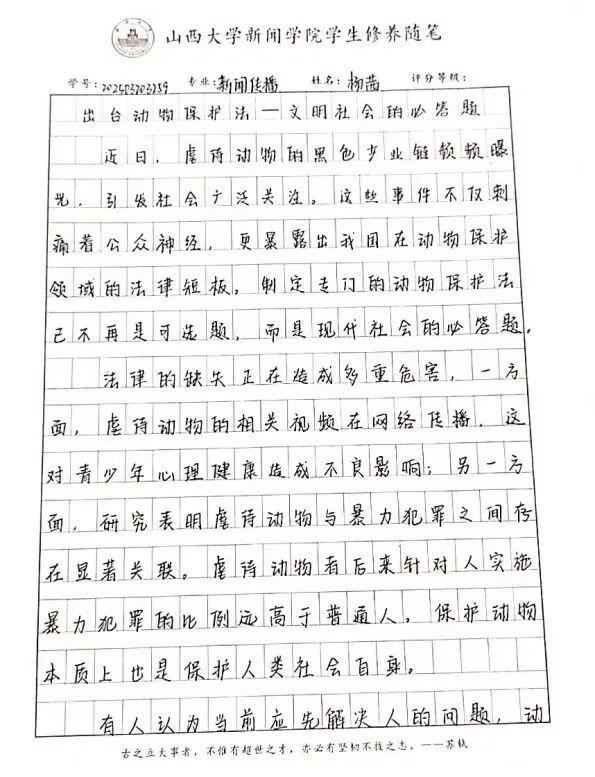 山西大学新闻学院学生修养随笔
学号: 202403203259 专业: 新闻传播 姓名: 杨茜 评分等级:
出台动物保护法—文明社会的必答题
近日，虐待动物的黑色产业链频频曝
光，引发社会广泛关注。这些事件不仅刺
痛着公众神经，更暴露出我国在动物保护
领域的法律短板，制定专门的动物保护法
已不再是可选题，而是现代社会的必答题。
法律的缺失正在造成多重危害，一方
面，虐待动物的相关视频在网络传播，这
对青少年心理健康造成不良影响；另一方
面，研究表明虐待动物与暴力犯罪之间存
在显著关联。虐待动物者后来针对人实施
暴力犯罪的比例远高于普通人，保护动物
本质上也是保护人类社会自身。
有人认为当前应先解决人的问题，动
古之立大事者，不惟有超世之才，亦必有坚韧不拔之志。——苏轼